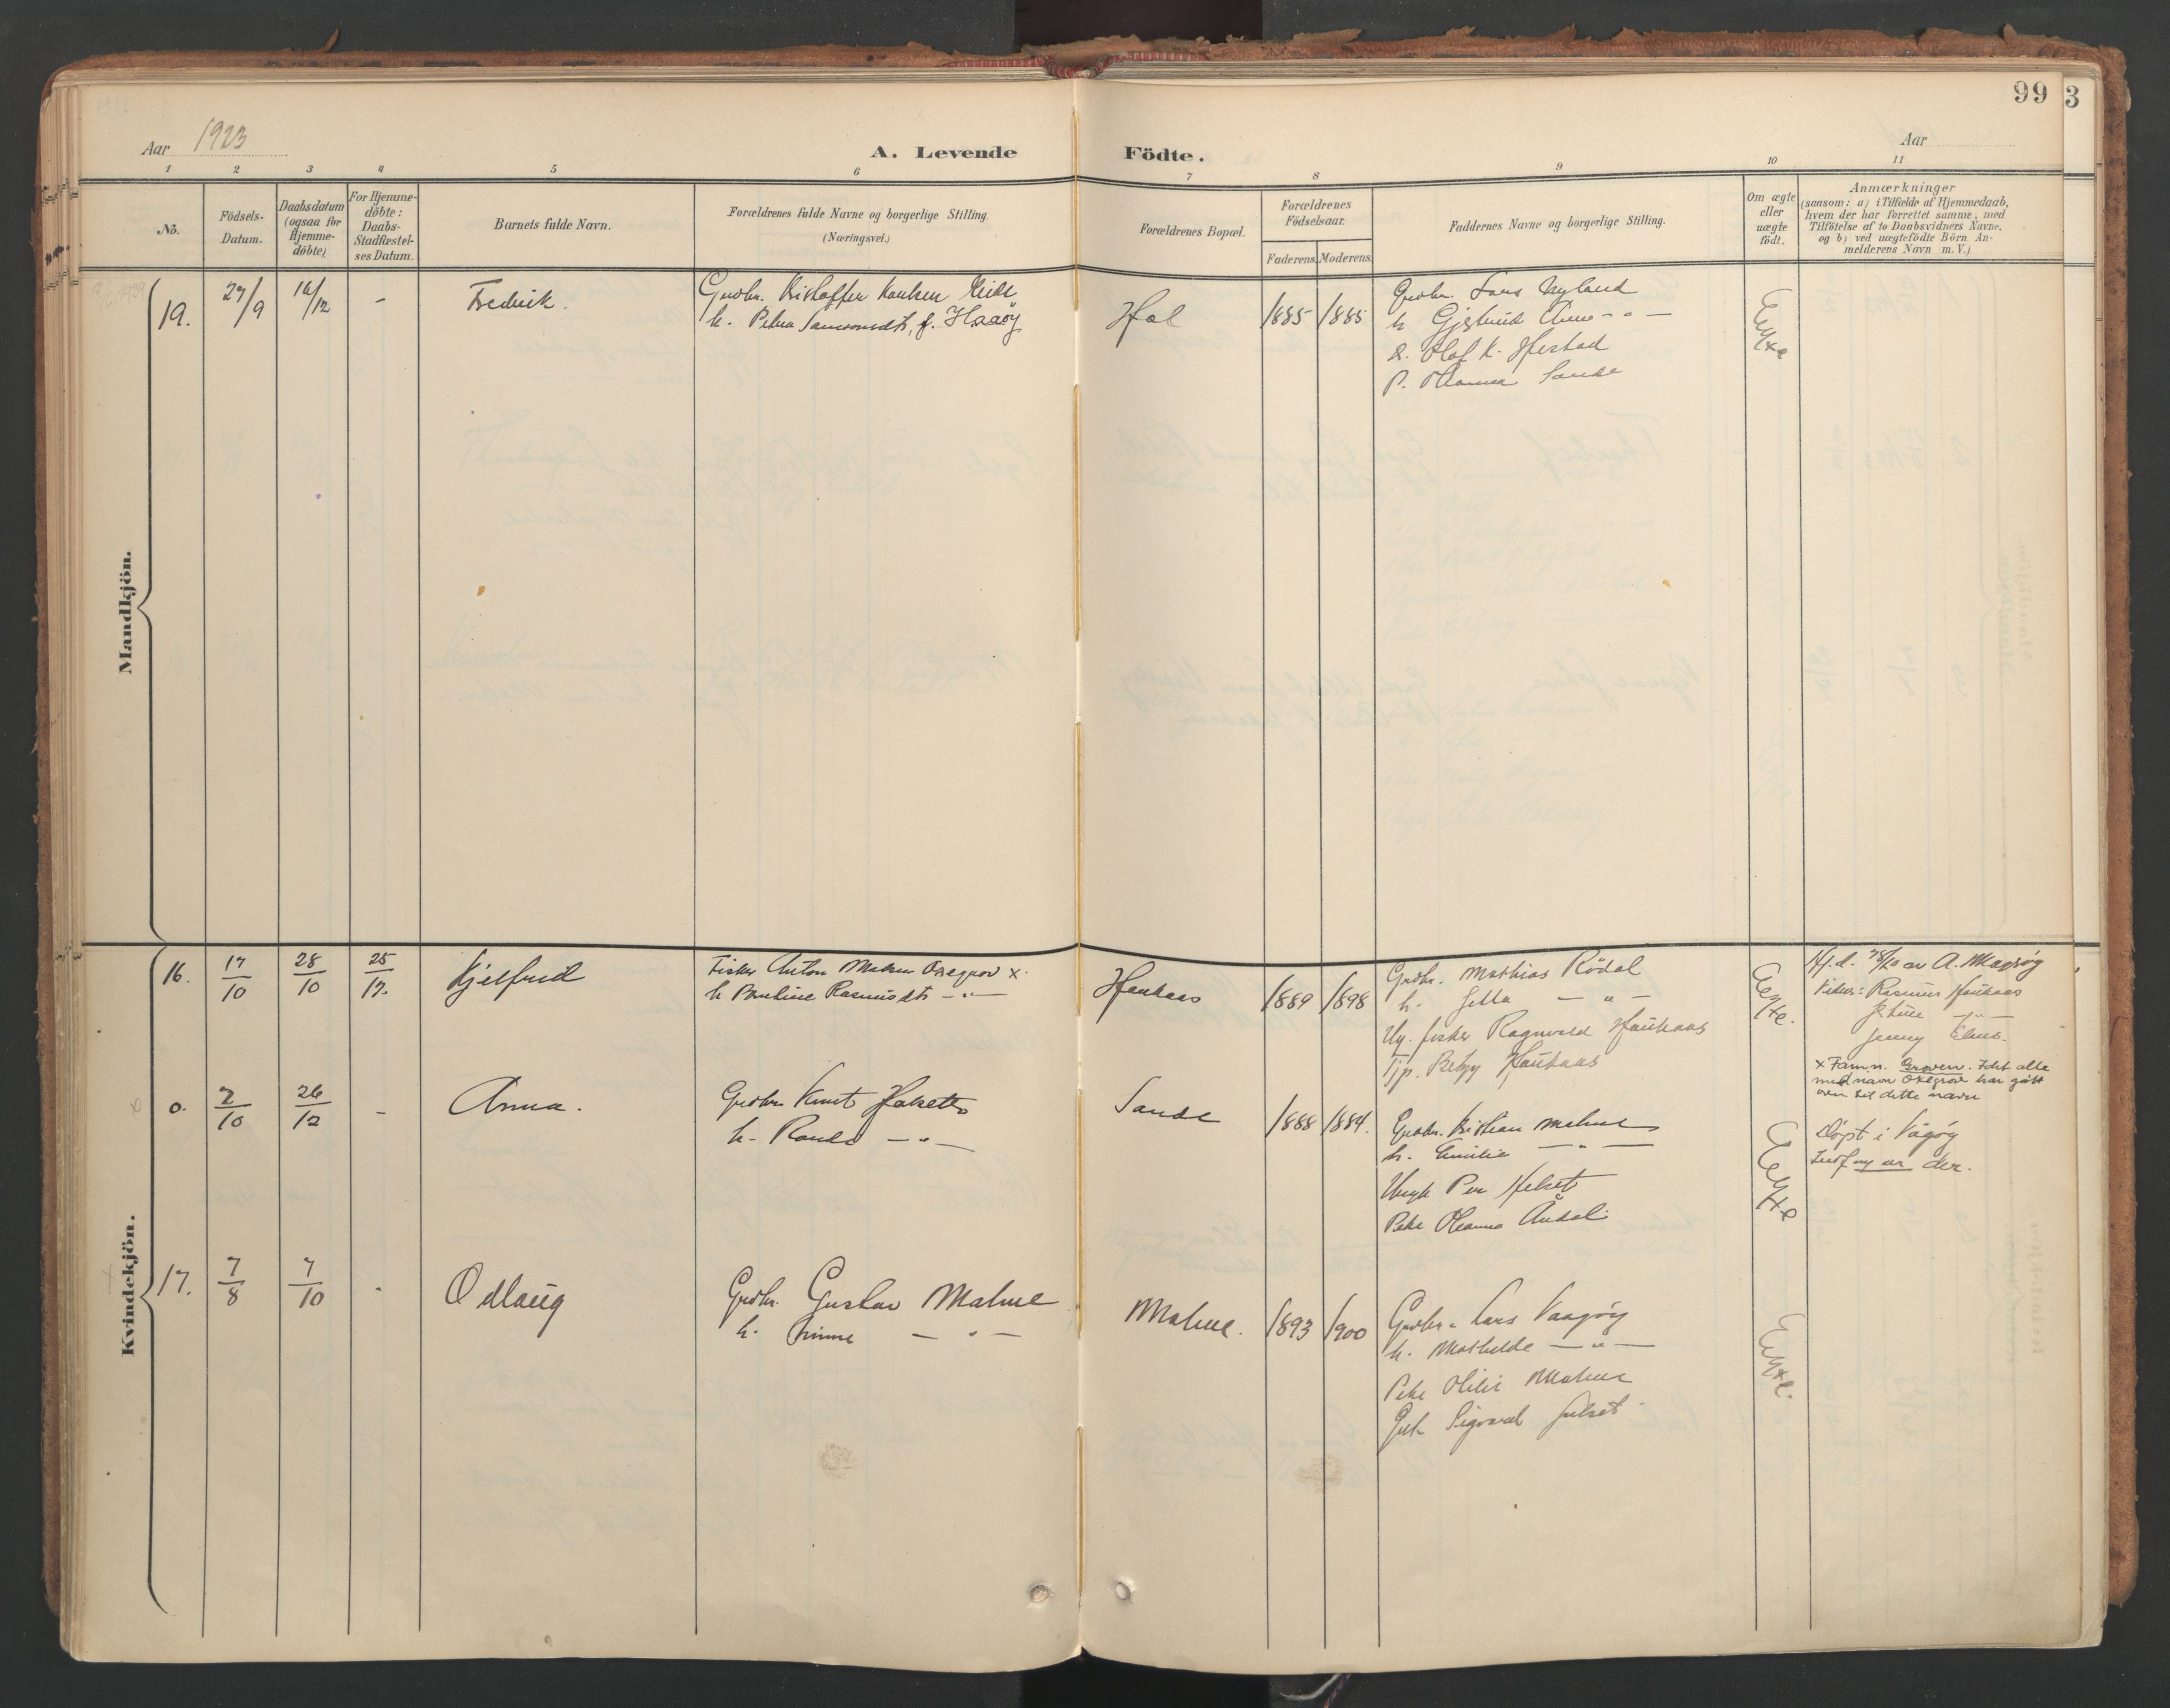 99
3
Aar 1923
A. Levende
Födte.
Aar
1 2 3 4 5 6 7 8 9 10 11
No.
Födsels-
Datum.
Daabsdatum
(ogsaa for
Hjemme-
döbte)
For Hjemme-
döbte:
Daabs-
Stadfæstel-
ses Datum.
Barnets fulde Navn.
Forældrenes fulde Navne og borgerlige Stilling.
(Næringsvei.)
Forældrenes Bopæl.
Forældrenes
Födselsaar.
Faderens. Moderens.
Faddernes Navne og borgerlige Stilling.
Om ægte
eller
uægte
födt.
Anmærkninger
(saasom: a) i Tilfælde af Hjemmedaab,
hvem der har forrettet samme, med
Tilföielse af to Daabsvidners Navne,
og b) ved uægtefödte Börn An-
melderens Navn m. V.)
Mandkjön.
19. 27/9 16/12 - Fredrik.
Grdbr. Kristoffer Knutsen Eide
h. Petra Samsonsdt, f. Haaöy
Hol 1885 1885
Grdbr. Lars Nyland
h Gjertrud Anne - " -
U. Olaf K. Hestad
P. Oleanna Sande
Ægte
Kvindekjön.
16. 17/10 28/10 25/12. Kjelfrid
Fisker Anton Madsen Oxegrov x.
h Pauline Rasmusdt. - " -
Haukaas 1889 1898
Grdbr. Mathias Rödal
h. Jetta - " -
Ug. fisker Ragnvald Haukaas
Tjp. Betzy Haukaas
Ægte.
Hj.d. 28/10 av A. Magöy
Vidner: Rasmus Haukaas
- " -
Jenny
x Famn. Groven. Idet alle
med navn Oxegrov har gått
over til dette navn
0. 2/10 26/12 - Anna.
Grdbr Knut Halsetts
h. - " -
Sande 1888 1884.
Grdbr. Kristian Malme
h. Emilie - " -
Ungk Per Helset
Pike Oleanna Åndal
Ægte
Döpt i Vågöy
Indf og av der.
17. 7/8 7/10 - Odlaug
Grdbr. Gustav Malme
h. - " -
Malme. 1893 1900
Grdbr. Lars Vaagöy
h. Mathilde - " -
Pike Malme
Gut Sigvard Julset
Ægte.